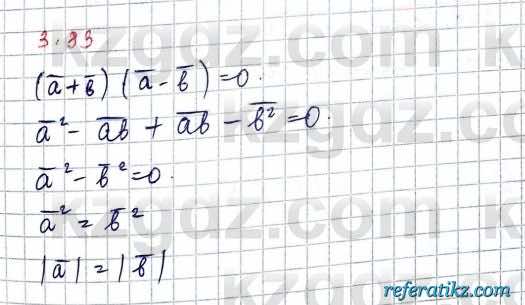 3.93
(a̅ + b̅) (a̅ - b̅) = 0.
a̅² - a̅b̅ + a̅b̅ - b̅² = 0.
a̅² - b̅² = 0.
a̅² = b̅²
|a̅| = |b̅|
kzgdz.com
referatikz.com